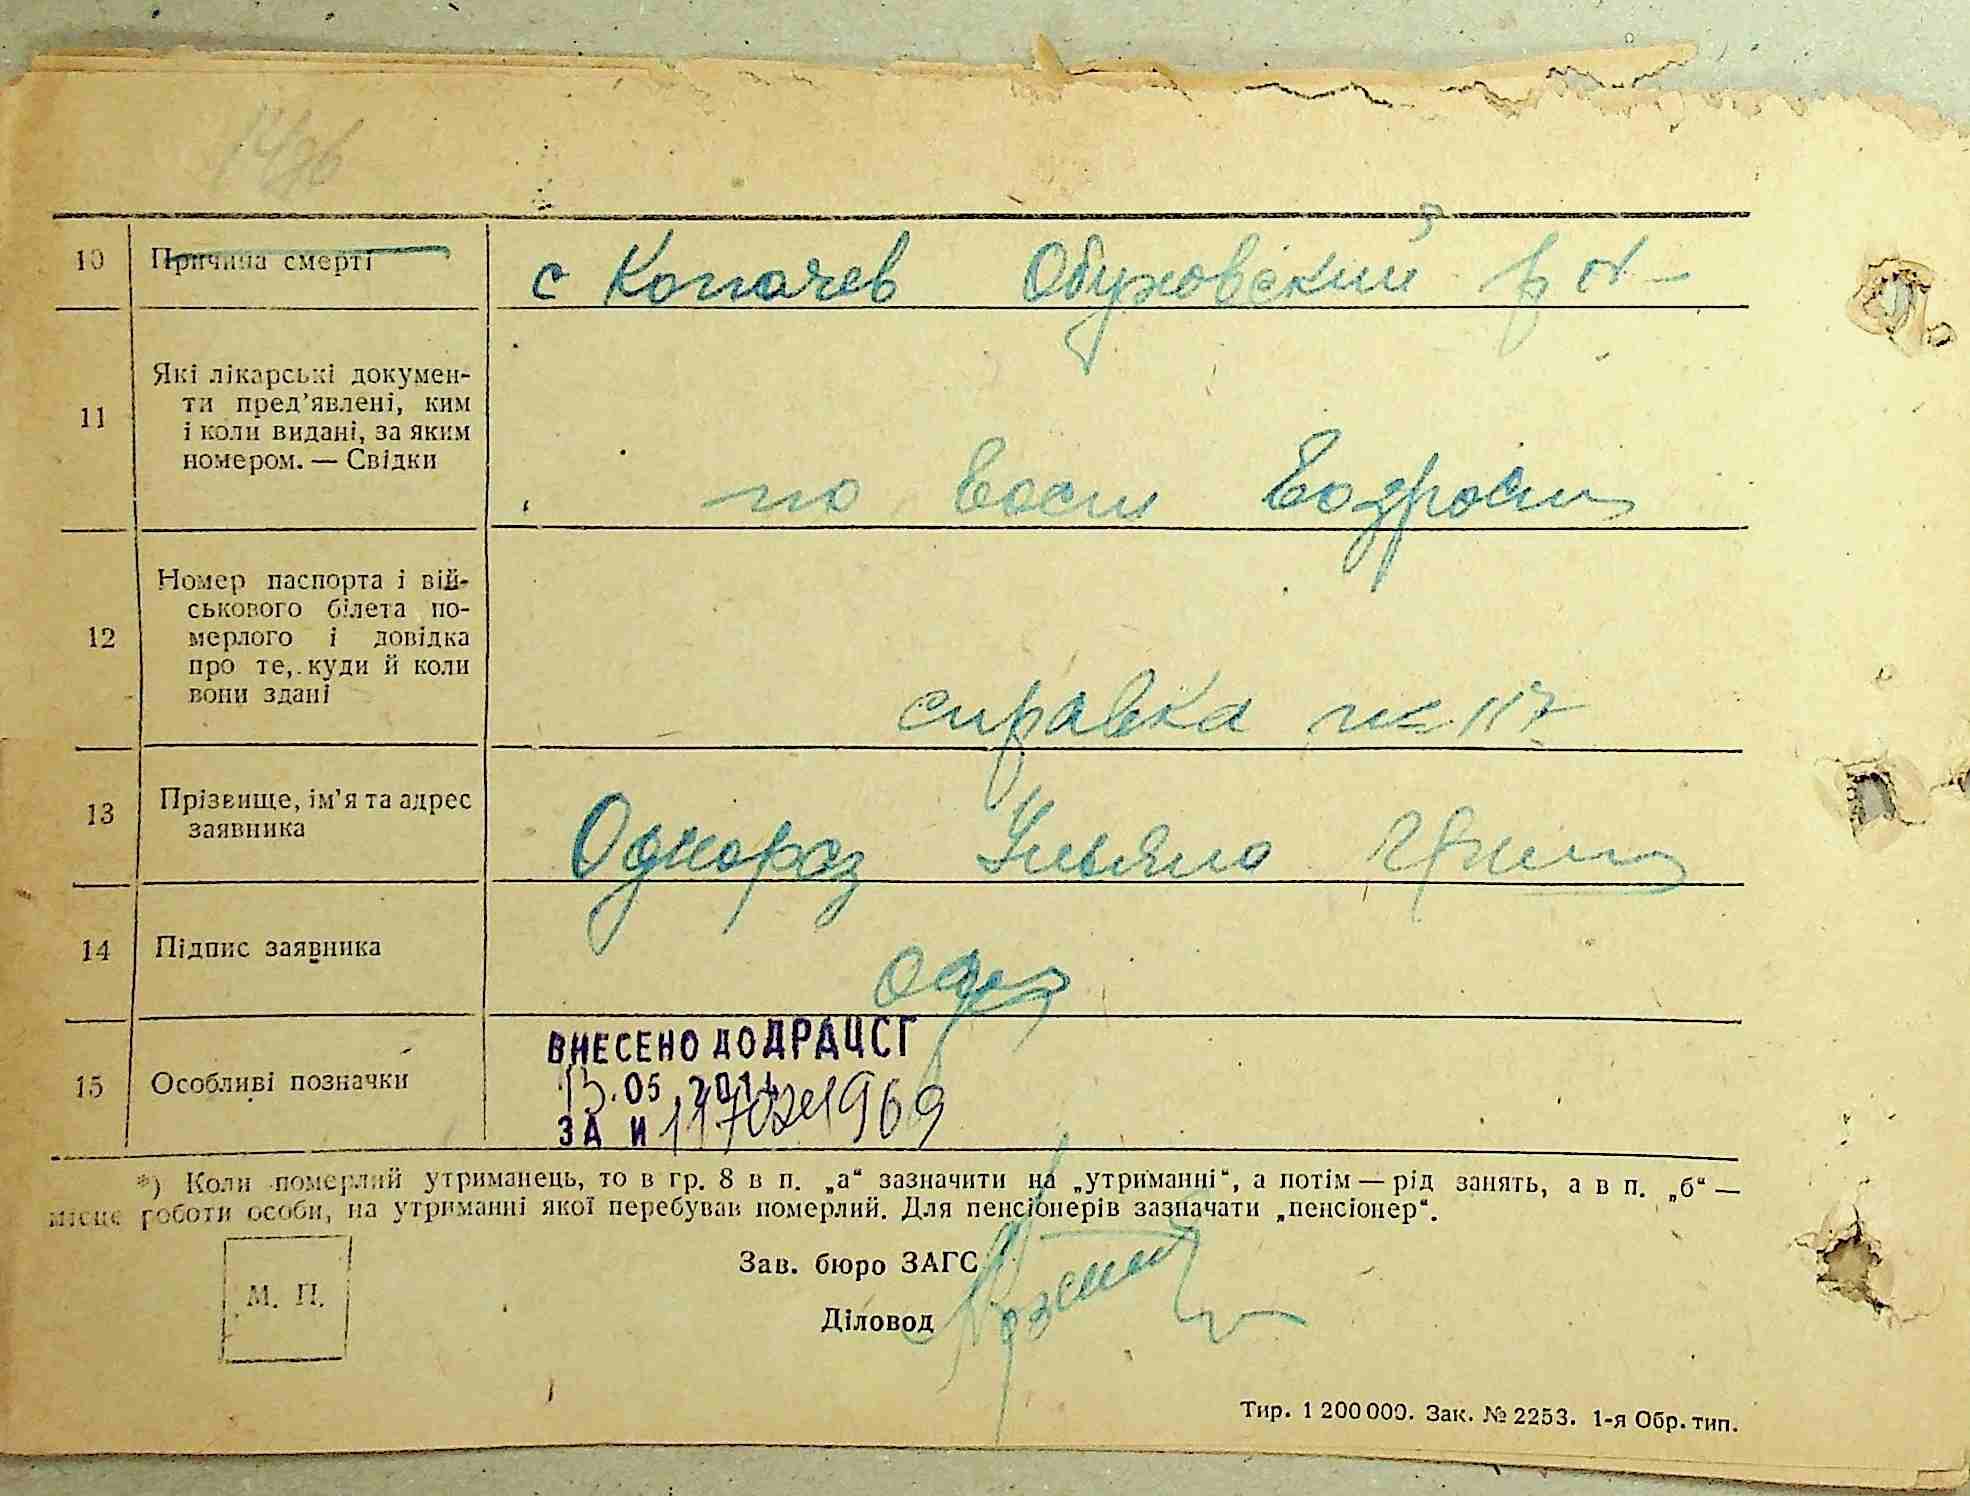 10 Причина смерті с Копачев Обуховский р н-
11 Які лікарські докумен-
ти пред’явлені, ким
і коли видані, за яким
номером. — Свідки
по
12 Номер паспорта і вій-
ськового білета по-
мерлого і довідка
про те, куди й коли
вони здані
справка 117
13 Прізвище, ім’я та адрес
заявника
Однораз Ульяна
14 Підпис заявника
15 Особливі позначки
ВНЕСЕНО ДО ДРАЦСГ
05
ЗА И
*) Коли померлий утриманець, то в гр. 8 в п. „а“ зазначити на „утриманні“, а потім — рід занять, а в п. „б“ —
місце роботи особи, на утриманні якої перебував померлий. Для пенсіонерів зазначати „пенсіонер“.
Зав. бюро ЗАГС
М. П.
Діловод
Тир. 1 200 000. Зак. № 2253. 1-я Обр. тип.